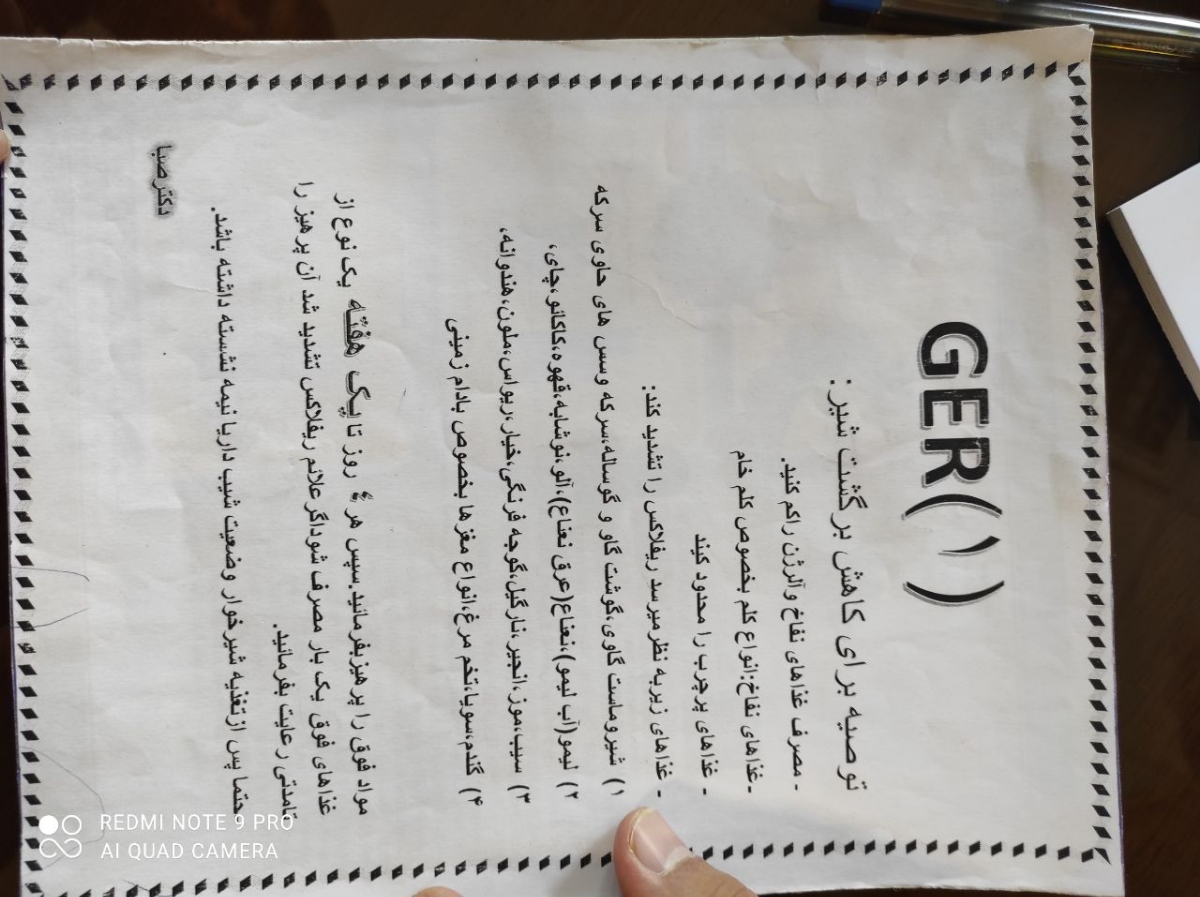 GER(۱)
توصیه برای کاهش برگشت شیر:
- مصرف غذاهای نفاخ و آلرژن راکم کنید.
-غذاهای نفاخ:انواع کلم بخصوص کلم خام
- غذاهای پرچرب را محدود کنید
- غذاهای زیربه نظرمیرسد ریفلاکس را تشدید کند:
۱) شیروماست گاوی،گوشت گاو و گوساله،سرکه وسس های حاوی سرکه
۲) لیمو(آب لیمو)،نعناع(عرق نعناع)،آلو،نوشابه،قهوه،کاکائو،چای،
۳) سیب،موز،انجیر،نارگیل،گوجه فرنگی،خیار،ریواس،ملون،هندوانه،
۴) گندم،سویا،تخم مرغ،انواع مغزها بخصوص بادام زمینی
مواد فوق را پرهیزبفرمائید.سپس هر۴ روز تایک هفته یک نوع از
غذاهای فوق یک بار مصرف شوداگرعلائم ریفلاکس تشدید شد آن پرهیز را
تامدتی رعایت بفرمائید.
حتما پس ازتغذیه شیرخوار وضعیت شیب داریا نیمه نشسته داشته باشد.
دکترصبا
REDMI NOTE 9 PRO
AI QUAD CAMERA